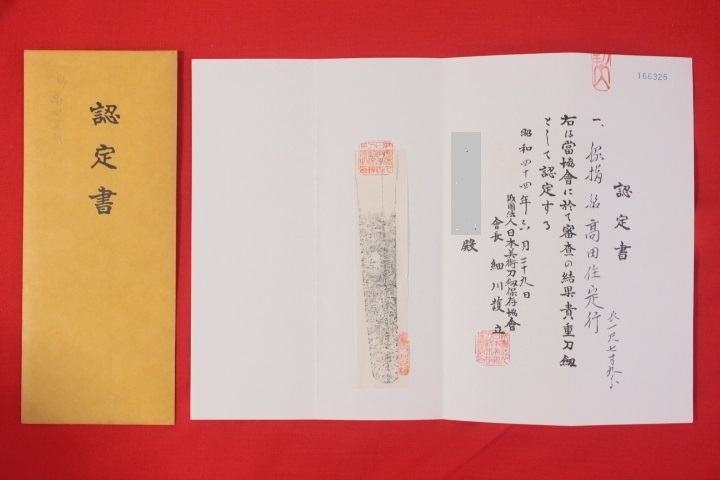 認定書
166326
認定書
一、脇指 銘 高田住定行
長一尺七寸九分
右は當協會に於て審査の結果貴重刀劔
として認定する
昭和四十四年六月二十九日
財團法人日本美術刀劔保存協會
會長 細川護立
殿